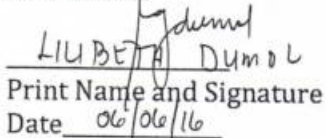 LIUBETA DUMOL
Print Name and Signature
Date 06/06/16